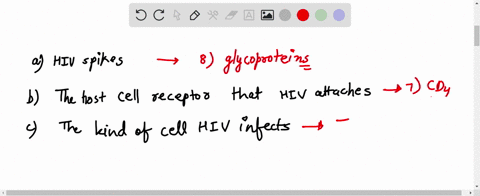 a) HIV spikes → 8) glycoproteins
b) The host cell receptor that HIV attaches → 7) CD4
c) The kind of cell HIV infects →